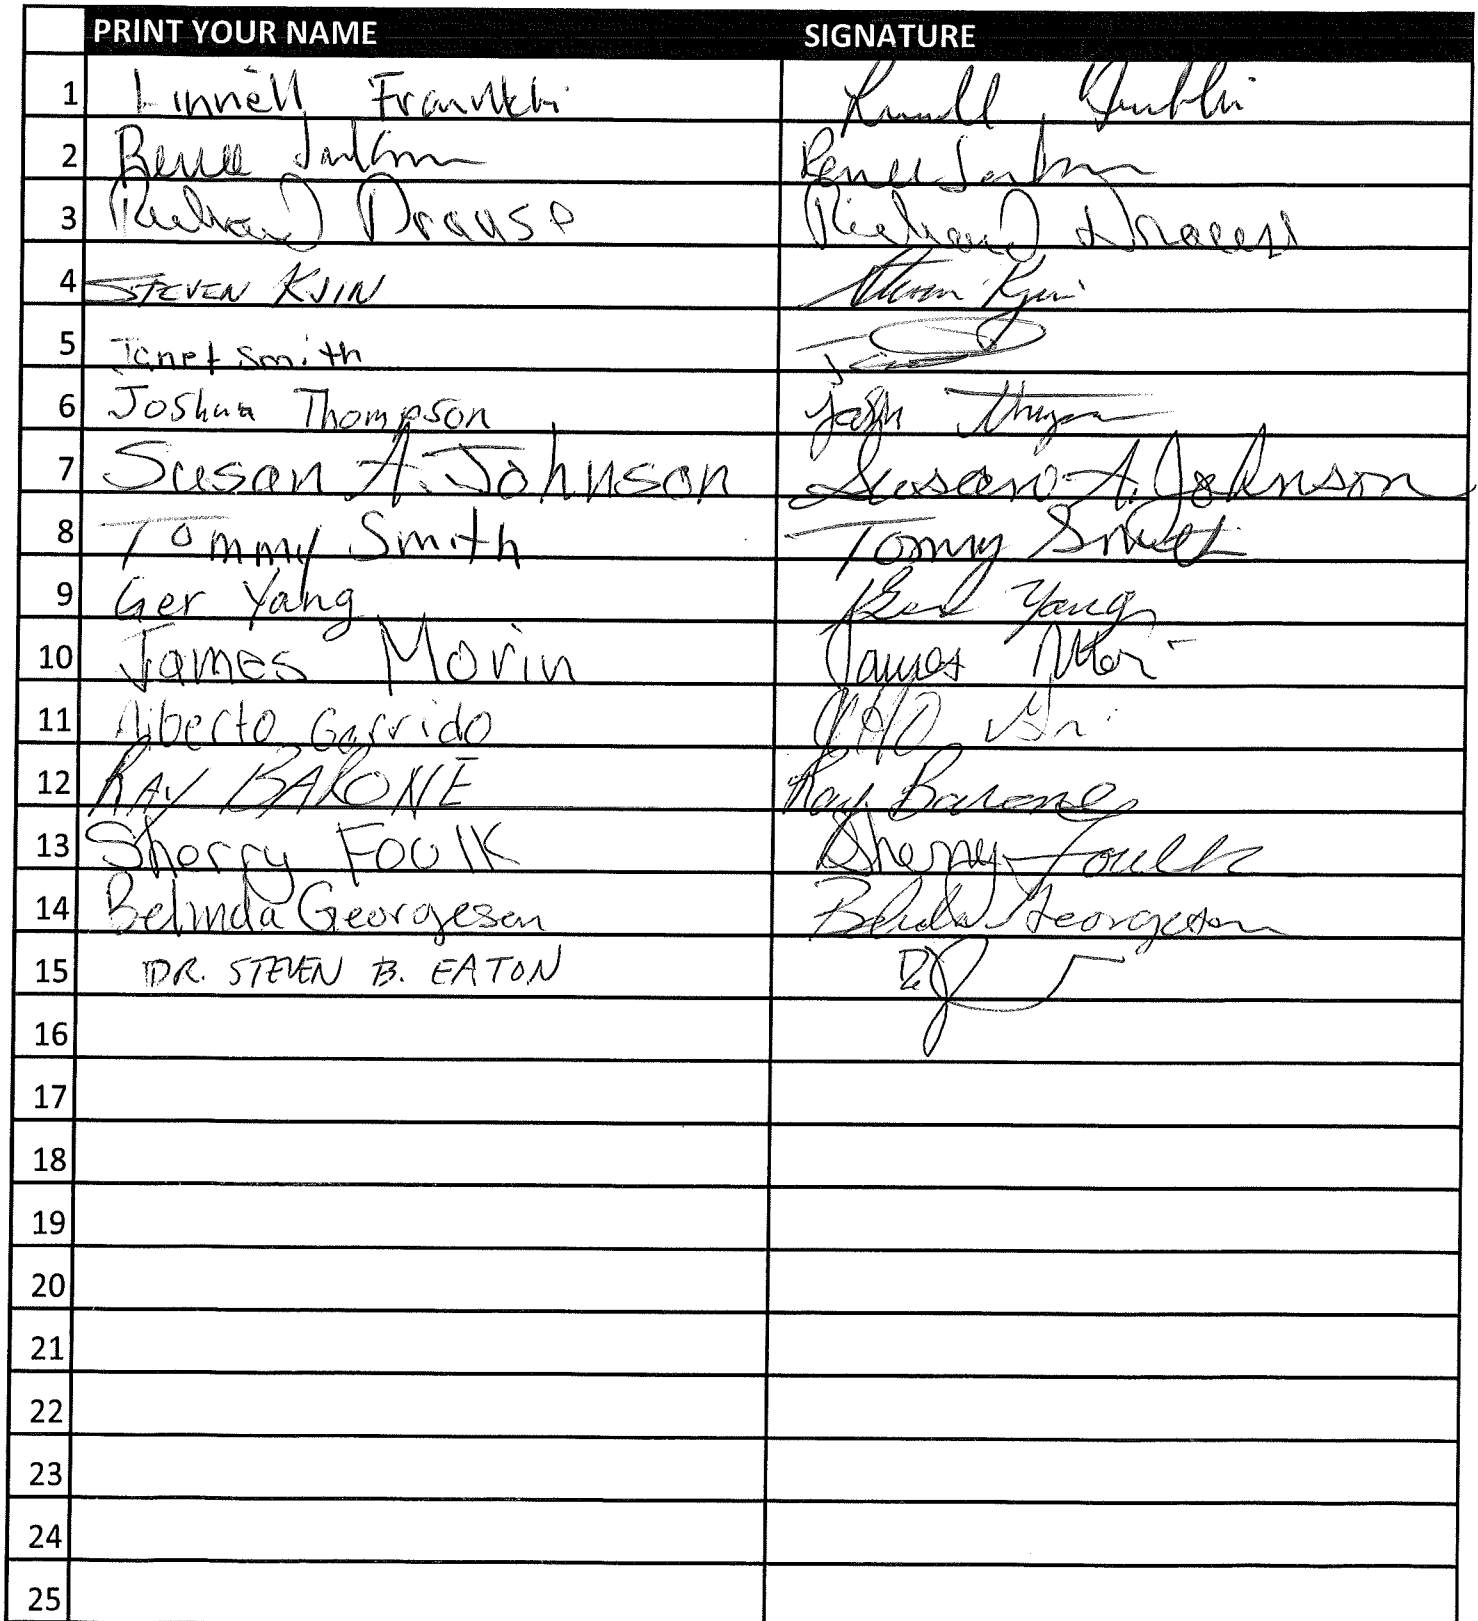 PRINT YOUR NAME SIGNATURE
1 Linnell
2 Renee Renee
3 Richard Drause Richard
4 STEVEN KJIN Steven Kjin
5 Janet Smith
6 Joshua Thompson Josh
7 Susan A. Johnson Susan A. Johnson
8 Tommy Smith Tommy Smith
9 Ger Yang Ger Yang
10 James Morin James
11 Alberto Garrido
12 RAY BARONE Ray Barone
13 Sherry Foulk Sherry Foulk
14 Belinda Georgesen Belinda Georgesen
15 DR. STEVEN B. EATON Dr.
16
17
18
19
20
21
22
23
24
25